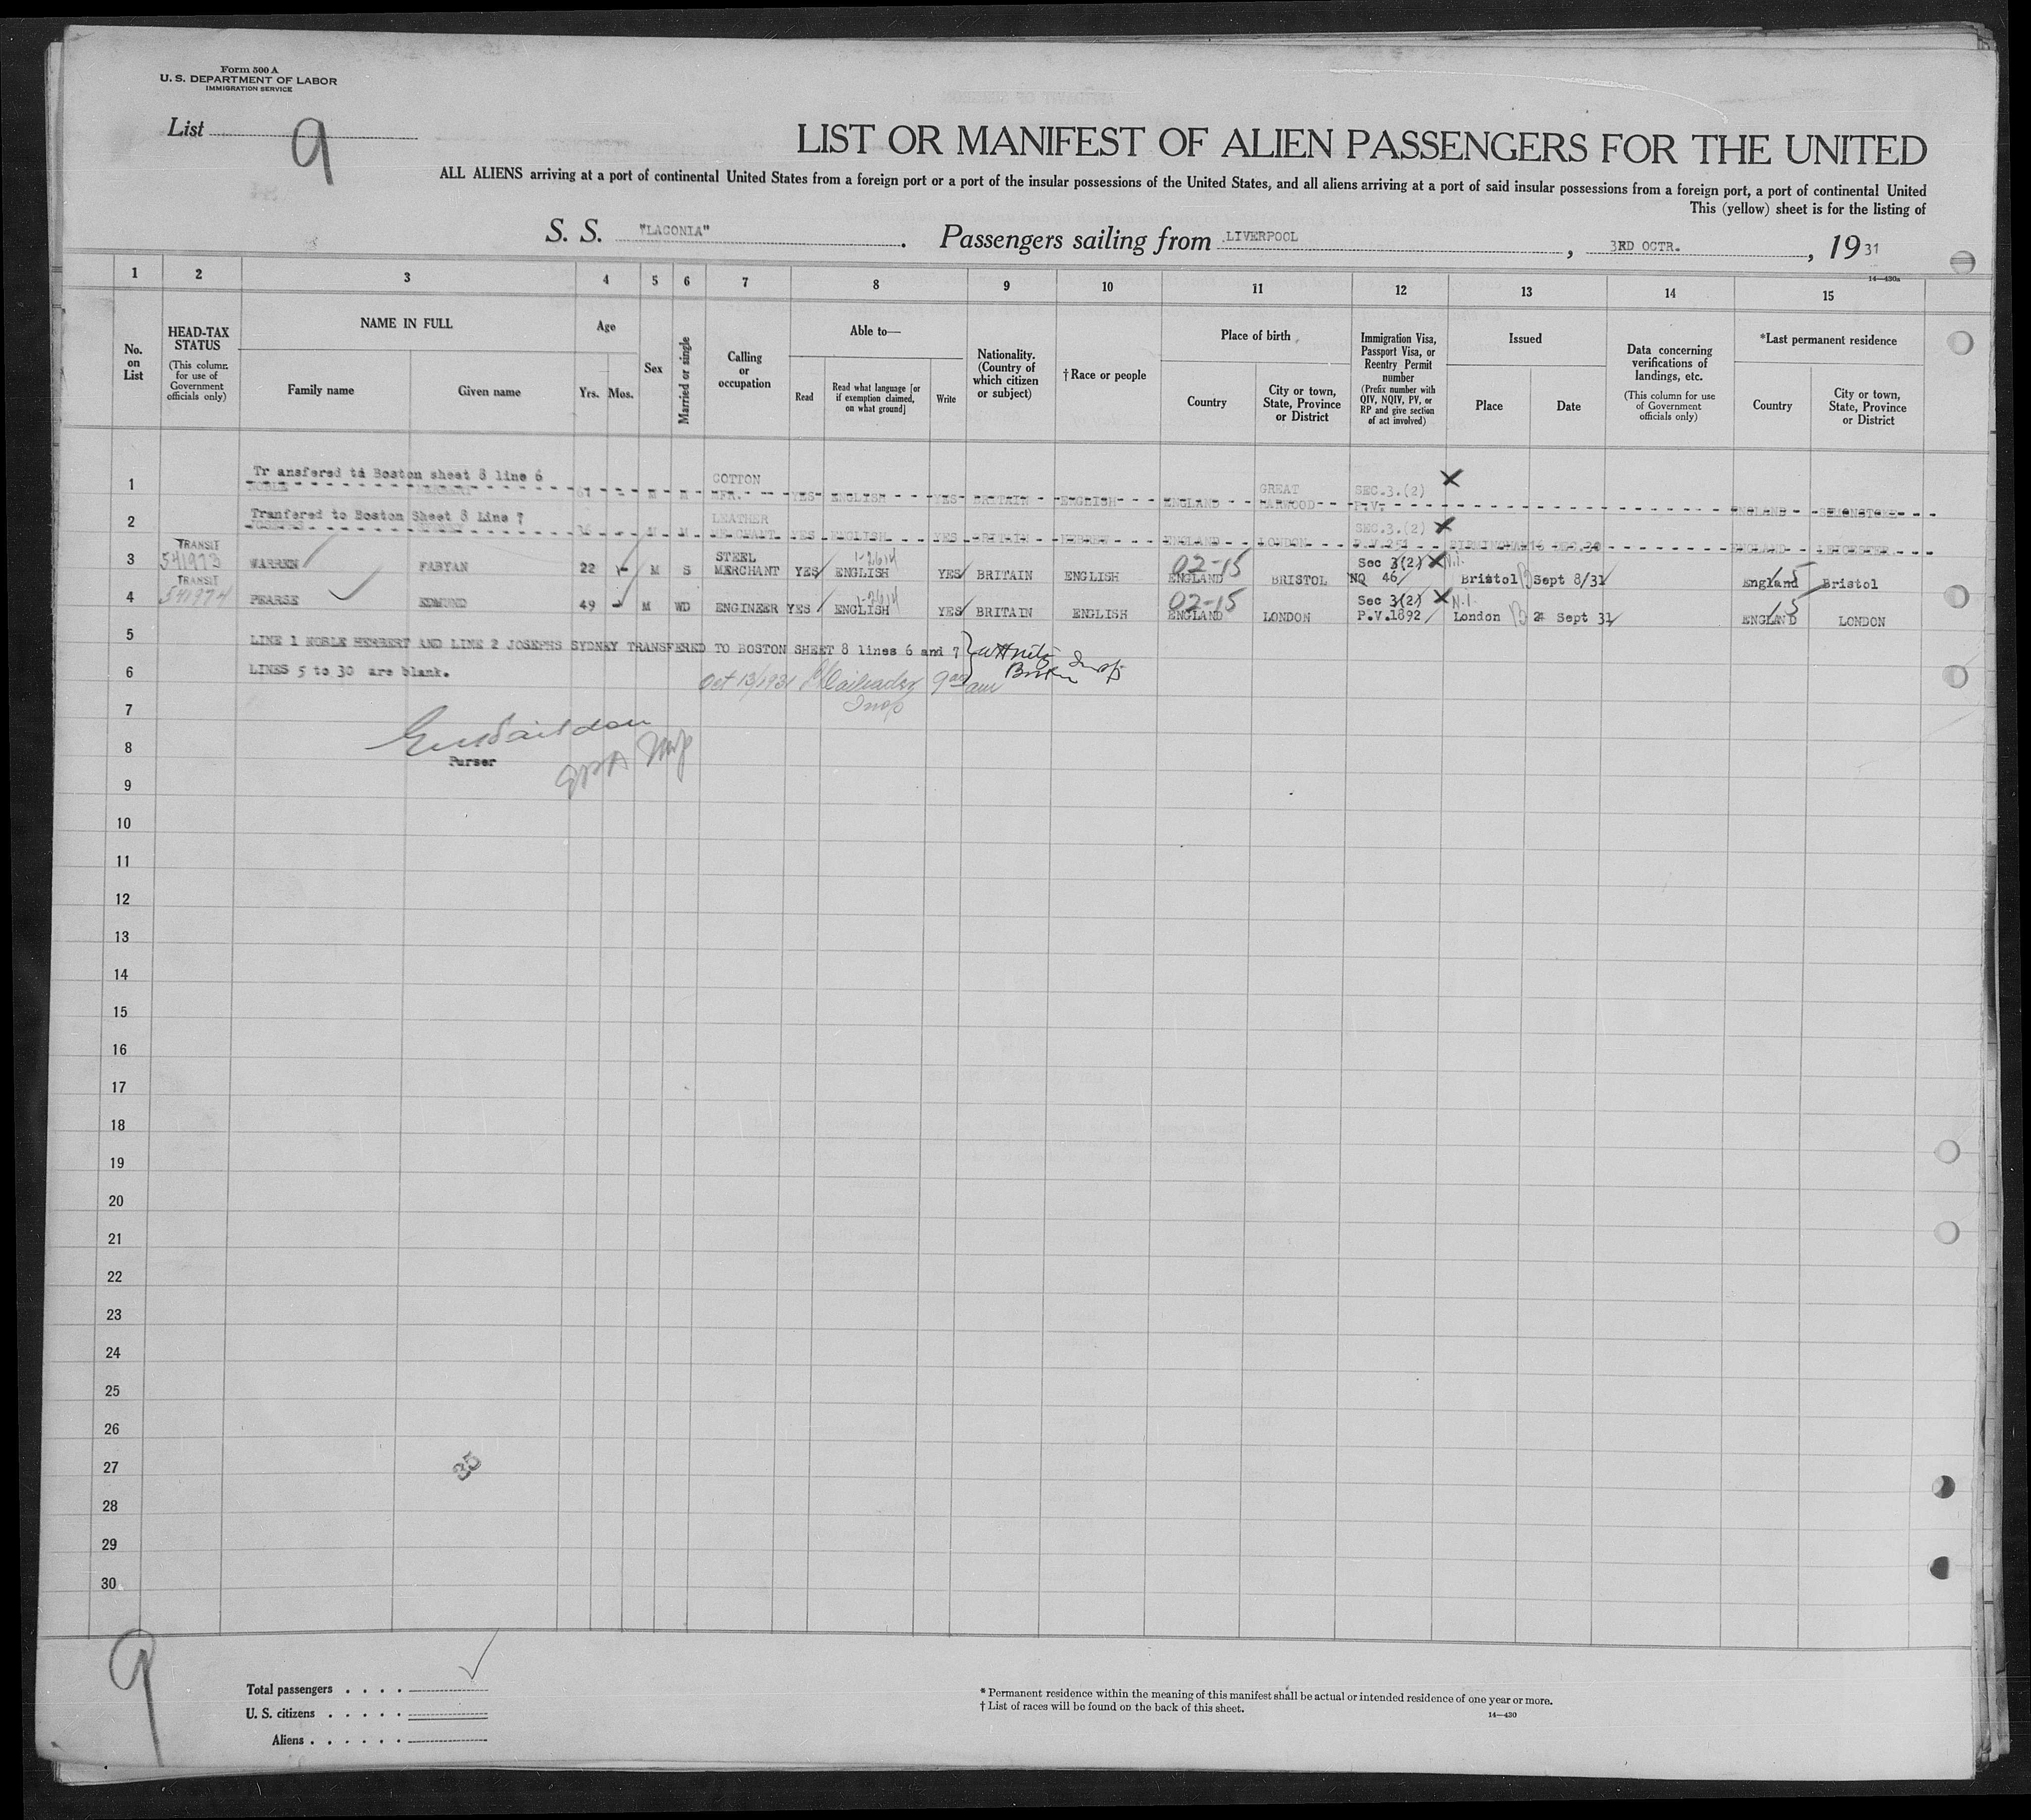 Form 500 A
U. S. DEPARTMENT OF LABOR
IMMIGRATION SERVICE
List 9
LIST OR MANIFEST OF ALIEN PASSENGERS FOR THE UNITED
ALL ALIENS arriving at a port of continental United States from a foreign port or a port of the insular possessions of the United States, and all aliens arriving at a port of said insular possessions from a foreign port, a port of continental United
This (yellow) sheet is for the listing of
S. S. "LACONIA". Passengers sailing from LIVERPOOL, 3RD OCTR., 1931
14—430a
1 2 3 4 5 6 7 8 9 10 11 12 13 14 15
No. on List
HEAD-TAX STATUS
(This column for use of Government officials only)
NAME IN FULL
Family name Given name
Age
Yrs. Mos.
Sex
Married or single
Calling or occupation
Able to—
Read Read what language [or if exemption claimed, on what ground] Write
Nationality. (Country of which citizen or subject)
†Race or people
Place of birth
Country City or town, State, Province or District
Immigration Visa, Passport Visa, or Reentry Permit number
(Prefix number with QIV, NQIV, PV, or RP and give section of act involved)
Issued
Place Date
Data concerning verifications of landings, etc.
(This column for use of Government officials only)
*Last permanent residence
Country City or town, State, Province or District
Tr ansfered to Boston sheet 8 line 6 COTTON
1 NOBLE HERBERT 61 M M MFR. YES ENGLISH YES BRITAIN ENGLISH ENGLAND GREAT HARWOOD SEC.3.(2) P.V. X ENGLAND SIMONSTONE
Tranfered to Boston Sheet 8 Line 7 LEATHER
2 JOSEPHS 36 M M MERCHANT YES ENGLISH YES BRITAIN HEBREW ENGLAND LONDON SEC.3.(2) P.V. 251 X BIRMINGHAM 16 DEC.30 ENGLAND LEICESTER
3 TRANSIT 541973 WARREN FABYAN 22 - M S STEEL MERCHANT YES 1-2614 ENGLISH YES BRITAIN ENGLISH 02-15 ENGLAND BRISTOL Sec 3(2) X NQ 46 N.I. Bristol Sept 8/31 England 15 Bristol
4 TRANSIT 541974 PEARSE EDMUND 49 - M WD ENGINEER YES 1-2614 ENGLISH YES BRITAIN ENGLISH 02-15 ENGLAND LONDON Sec 3(2) X P.V.1892 N.I. London 24 Sept 31 ENGLAND 15 LONDON
5 LINE 1 NOBLE HERBERT AND LINE 2 JOSEPHS SYDNEY TRANSFERED TO BOSTON SHEET 8 lines 6 and 7 Insp
6 LINES 5 to 30 are blank. Oct 13/1931 9 00 am Boston
Insp
7
8
Purser
9
10
11
12
13
14
15
16
17
18
19
20
21
22
23
24
25
26
27
35
28
29
30
9
Total passengers . . . .
U. S. citizens . . . . .
Aliens . . . . . .
* Permanent residence within the meaning of this manifest shall be actual or intended residence of one year or more.
† List of races will be found on the back of this sheet.
14—430